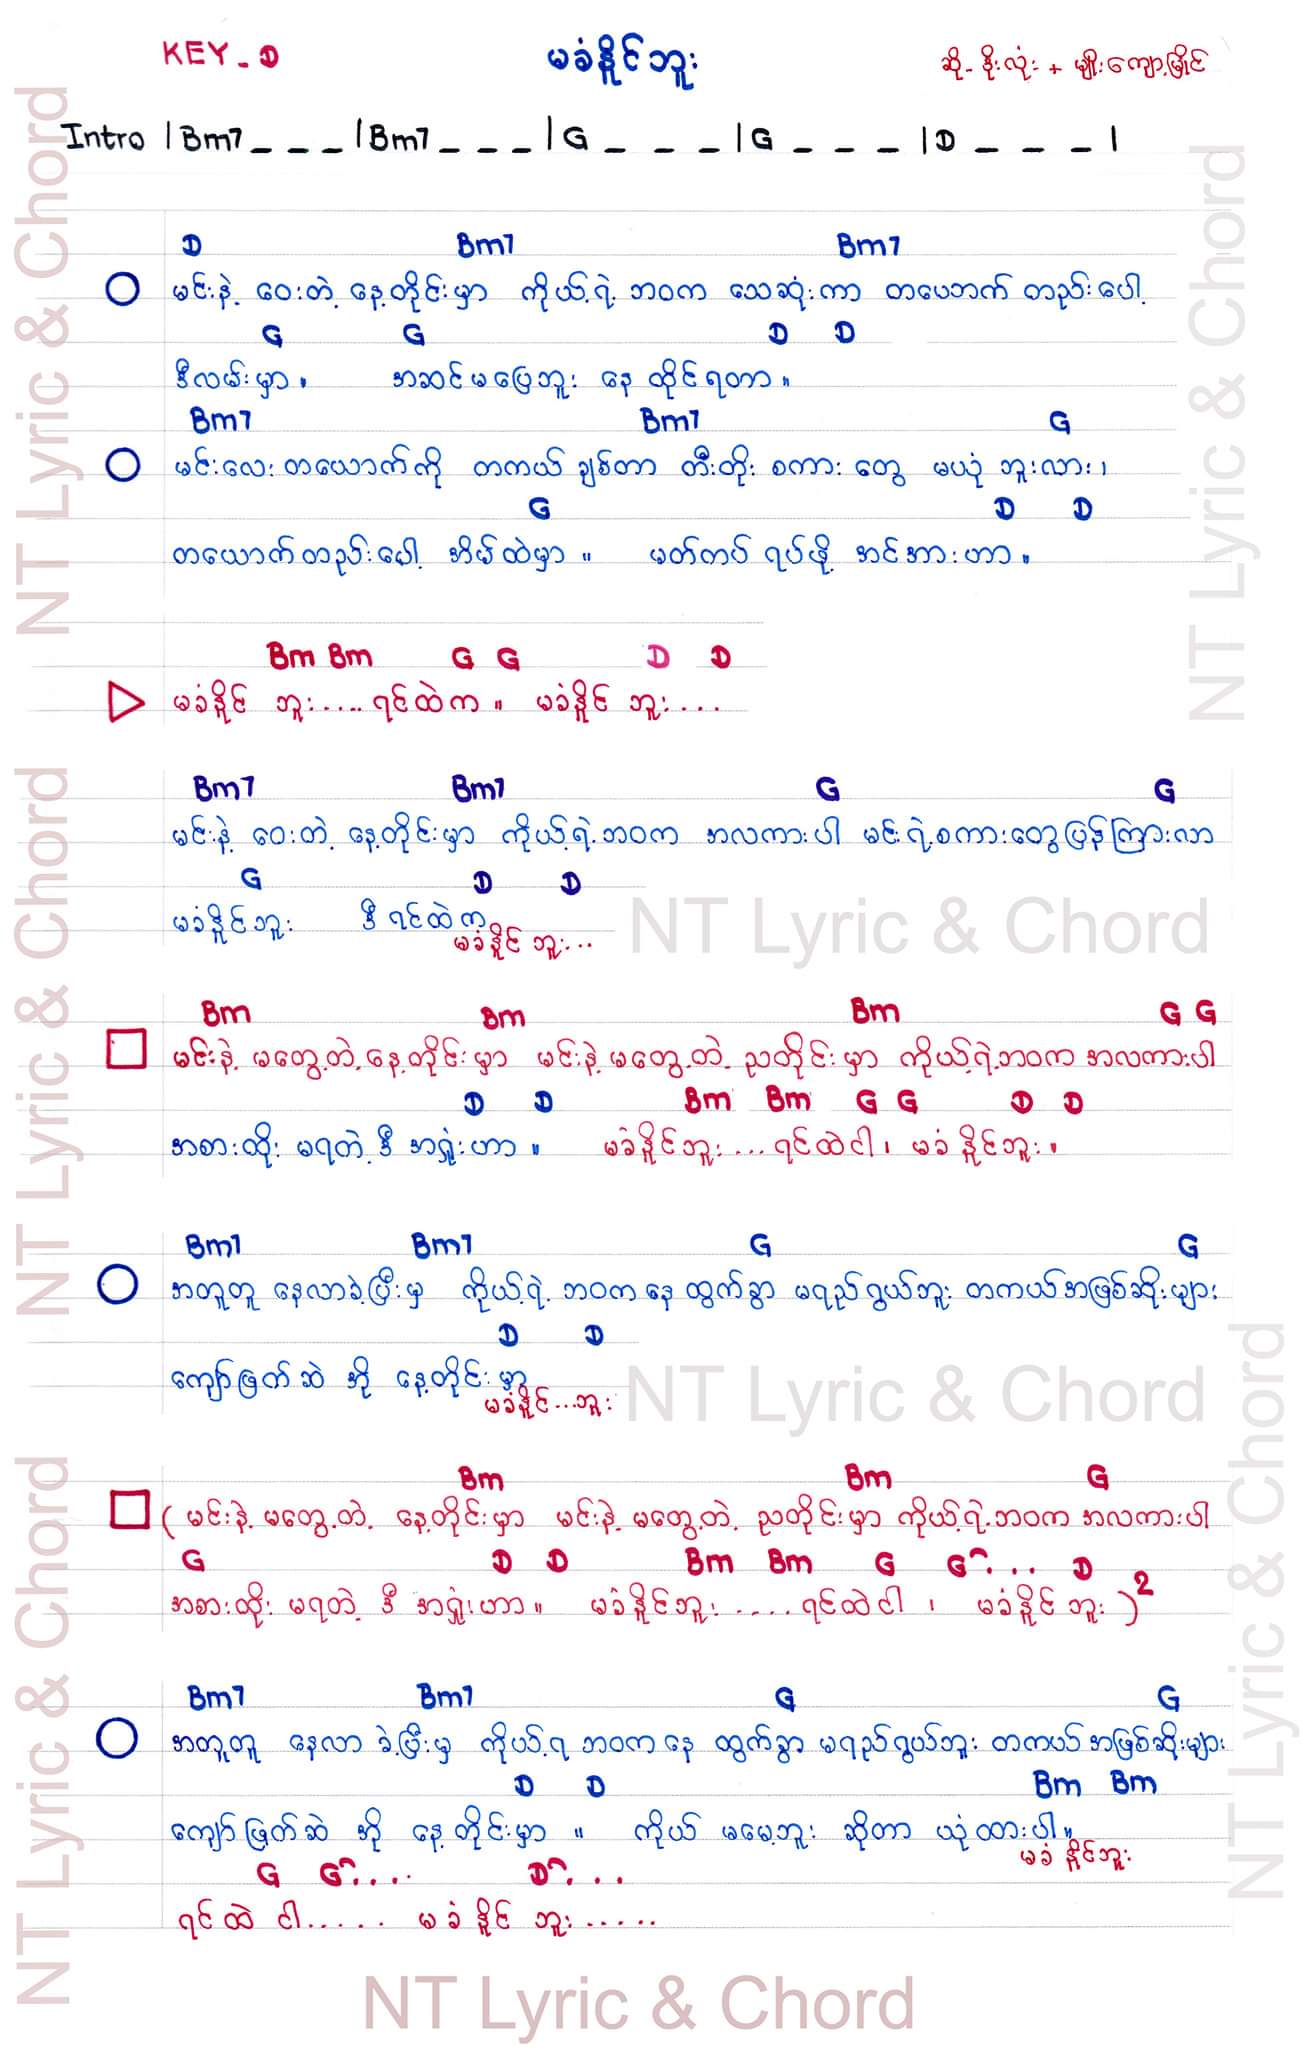 KEY - D
မခံနိူင်ဘူး
ဆို - နိုးလုံး + မျိုးကျော့မြိုင်
Intro | Bm7 _ _ _ | Bm7 _ _ _ | G _ _ _ | G _ _ _ | D _ _ _ |
D Bm7 Bm7
မင်းနဲ့ ဝေးတဲ့ နေ့တိုင်းမှာ ကိုယ့်ရဲ့ ဘဝက သေဆုံးကာ တပေဘက် တည်းပေါ့
G G D D
ဒီလမ်းမှာ ။ အဆင်မပြေဘူး နေ ထိုင်ရတာ ။
Bm7 Bm7 G
မင်းလေး တယောက်ကို တကယ် ချစ်တာ တီးတိုး စကား တွေ မယုံ ဘူးလား ၊
G D D
တယောက်တည်းပေါ့ အိမ်ထဲမှာ ။ မတ်တပ် ရပ်ဖို့ အင်အားဟာ ။
Bm Bm G G D D
မခံနိူင် ဘူး.... ရင်ထဲက ။ မခံနိူင် ဘူး...
Bm7 Bm7 G G
မင်းနဲ့ ဝေးတဲ့ နေ့တိုင်းမှာ ကိုယ့်ရဲ့ဘဝက အလကားပါ မင်းရဲ့စကားတွေပြန်ကြားလာ
G D D
မခံနိူင်ဘူး ဒီ ရင်ထဲက
မခံနိူင် ဘူး...
Bm Bm Bm G G
မင်းနဲ့ မတွေ့တဲ့ နေ့တိုင်းမှာ မင်းနဲ့ မတွေ့တဲ့ ညတိုင်းမှာ ကိုယ့်ရဲ့ဘဝက အလကားပါ
D D Bm Bm G G D D
အစားထိုး မရတဲ့ ဒီ အရှုံးဟာ ။ မခံနိူင်ဘူး ... ရင်ထဲငါ ၊ မခံ နိူင်ဘူး ။
Bm7 Bm7 G G
အတူတူ နေလာခဲ့ပြီးမှ ကိုယ့်ရဲ့ ဘဝက နေ ထွက်ခွာ မရည်ရွယ်ဘူး တကယ်အဖြစ်ဆိုးများ
D D
ကျော်ဖြတ်ဆဲ အို နေ့တိုင်းမှာ
မခံနိူင် ...ဘူး
Bm Bm G
( မင်းနဲ့ မတွေ့တဲ့ နေ့တိုင်းမှာ မင်းနဲ့ မတွေ့တဲ့ ညတိုင်းမှာ ကိုယ့်ရဲ့ဘဝက အလကားပါ
G D D Bm Bm G G^... D
အစားထိုး မရတဲ့ ဒီ အရှုံးဟာ ။ မခံနိူင်ဘူး .... ရင်ထဲငါ ၊ မခံနိူင် ဘူး )2
Bm7 Bm7 G G
အတူတူ နေလာ ခဲ့ပြီးမှ ကိုယ့်ရဲ့ ဘဝက နေ ထွက်ခွာ မရည်ရွယ်ဘူး တကယ် အဖြစ်ဆိုးများ
D D Bm Bm
ကျော်ဖြတ်ဆဲ အို နေ့ တိုင်းမှာ ။ ကိုယ် မမေ့ဘူး ဆိုတာ ယုံထားပါ ။
မခံ နိူင်ဘူး
G G^.... D^....
ရင်ထဲ ငါ ..... မခံ နိူင် ဘူး .....
NT Lyric & Chord
NT Lyric & Chord
NT Lyric & Chord
NT Lyric & Chord
NT Lyric & Chord
NT Lyric & Chord
NT Lyric & Chord
NT Lyric & Chord